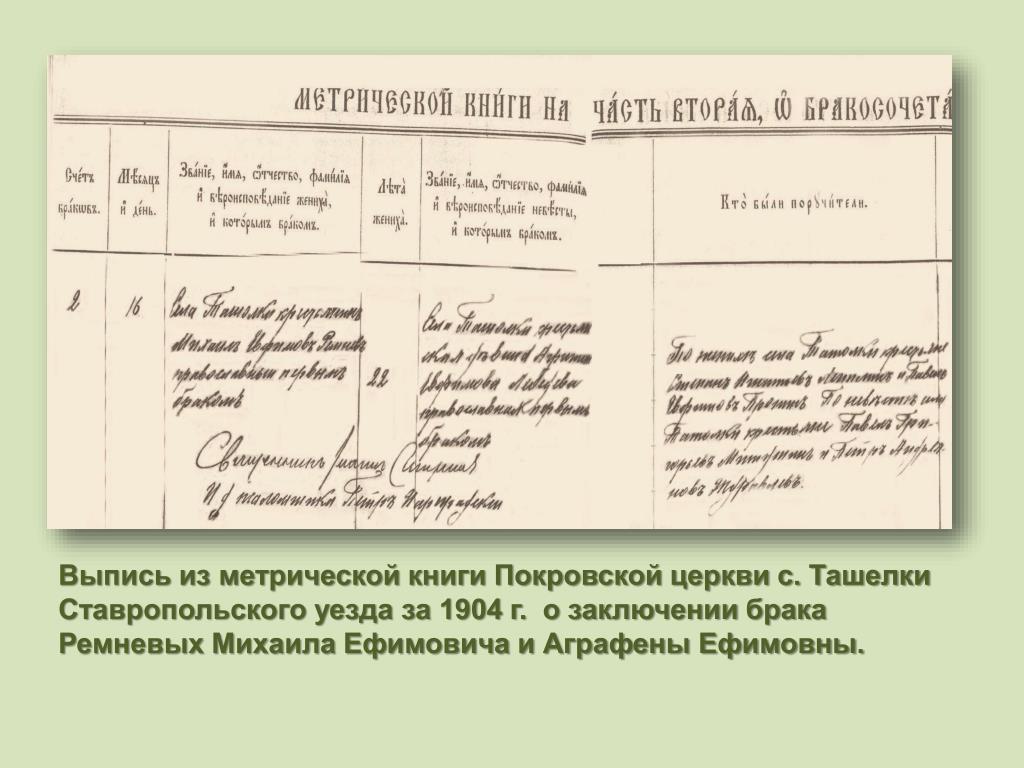 МЕТРИЧЕСКОЙ КНИ́ГИ НА ЧА́СТЬ ВТОРА́Я, Ѽ БРАКОСОЧЕТА́
Сче́тъ бра́кѡвъ.
Мѣ́сяцъ и҆ де́нь.
Зва́нїе, и҆́мя, ѻ҆́тчество, фами́лїя и҆ вѣроисповѣ́данїе жениха̀, и҆ кото́рымъ бра́комъ.
Лѣта̀ жениха̀.
Зва́нїе, и҆́мя, ѻ҆́тчество, фами́лїя и҆ вѣроисповѣ́данїе невѣ́сты, и҆ кото́рымъ бра́комъ.
Кто̀ бы́ли поручи́тели.
2
16
Села Ташолки крестьянинъ
Михаилъ Евфимовъ Ремневъ
православный первымъ
бракомъ
22
Села Ташолки крестьян
ская девица Агрипина
Евфимова Лебедева
православная первымъ
бракомъ
По жених села Ташолки крестьяне
Степанъ и Павелъ
Евфимовъ Пронинъ По невѣсте села
Ташолки крестьяне Павелъ Гри-
горьевъ и Петръ Андрея-
новъ Журавлевъ.
Священникъ Іоаннъ
И д псаломщика Петръ
Выпись из метрической книги Покровской церкви с. Ташелки
Ставропольского уезда за 1904 г. о заключении брака
Ремневых Михаила Ефимовича и Аграфены Ефимовны.